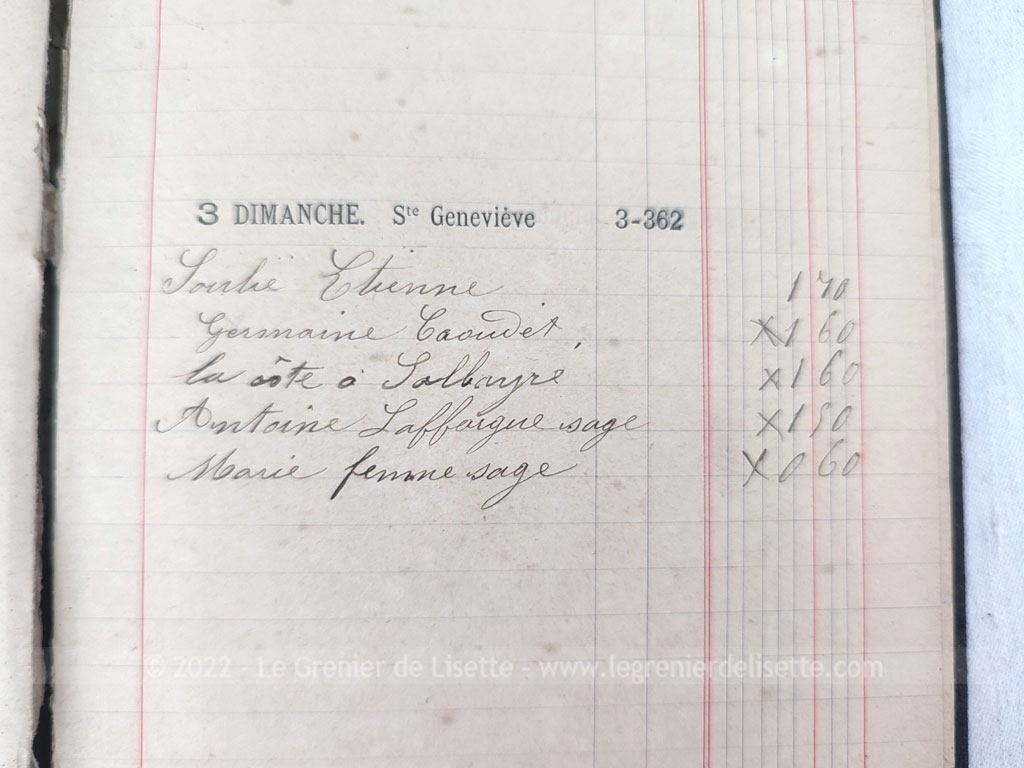 3 DIMANCHE. Ste Geneviève 3-362
Soulié Etienne 1 70
Germaine Caoudet, X 1 60
la côte à Salbayre X 1 60
Antoine Laffargue sage X 1 50
Marie femme sage X 0 60
© 2022 - Le Grenier de Lisette - www.legrenierdelisette.com